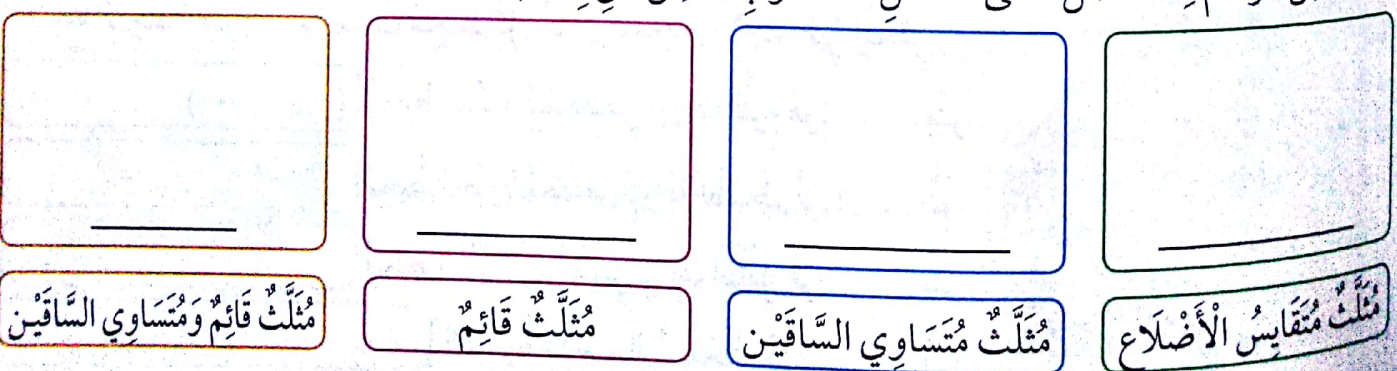 مُثَلَّثٌ مُتَقَايِسُ الْأَضْلَاعِ
مُثَلَّثٌ مُتَسَاوِي السَّاقَيْنِ
مُثَلَّثٌ قَائِمٌ
مُثَلَّثٌ قَائِمٌ وَمُتَسَاوِي السَّاقَيْنِ